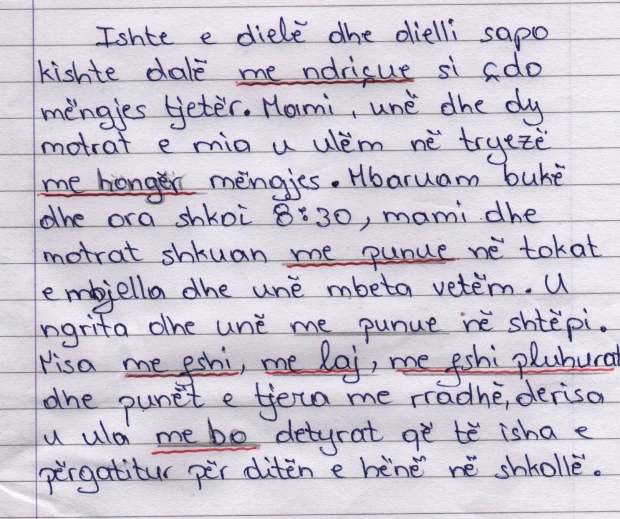 Ishte e dielë dhe dielli sapo
kishte dalë me ndriçue si çdo
mëngjes tjetër. Mami, unë dhe dy
motrat e mia u ulëm në tryezë
me hongër mëngjes. Mbaruam bukë
dhe ora shkoi 8:30, mami dhe
motrat shkuan me punue në tokat
e mbjella dhe unë mbeta vetëm. U
ngrita dhe unë me punue në shtëpi.
Nisa me fshi, me laj, me fshi pluhurat
dhe punët e tjera me rradhë, derisa
u ula me bo detyrat që të isha e
përgatitur për ditën e hënë në shkollë.